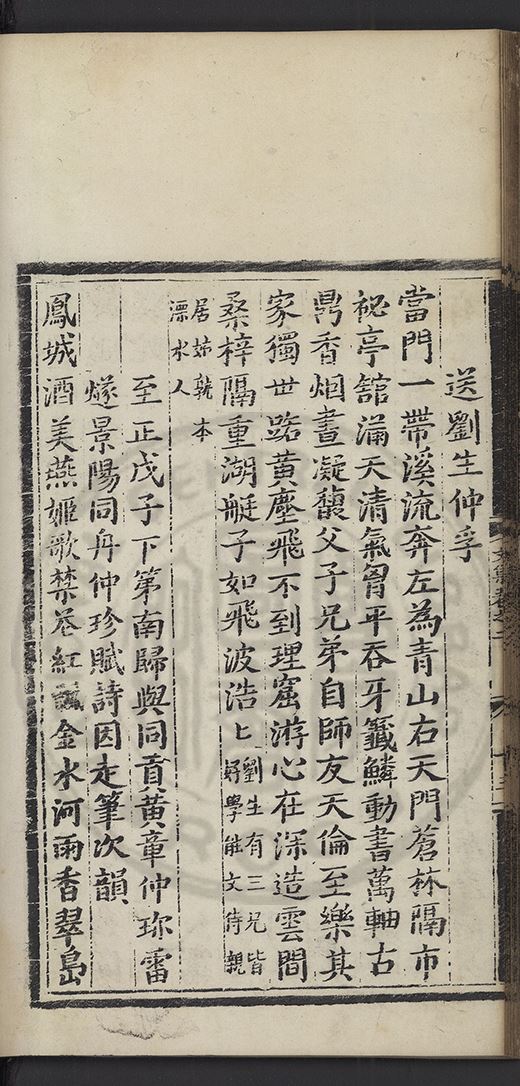 送劉生仲孚
當門一帶溪流奔左為青山右天門蒼林隔市
祕亭舘滿天清氣胷平吞牙籤鱗動書萬軸古
鼎香烟晝凝馥父子兄弟自師友天倫至樂其
家獨世路黃塵飛不到理窟游心在深造雲間
桑梓隔重湖艇子如飛波浩〻劉生有三兄皆
好學能文侍親
居姑孰本
漂水人
至正戊子下第南歸與同貢黃章仲珎雷
燧景陽同舟仲珍賦詩因走筆次韻
鳳城酒美燕姬歌禁苍紅金水河雨香翠島